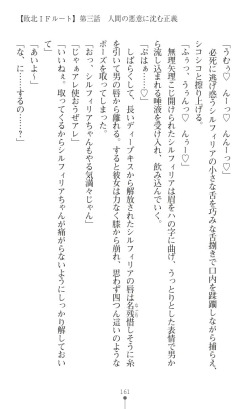 【敗北ＩＦルート】第三話　人間の悪意に沈む正義
「うむぅ♡　んーっ♡　んんーっ♡」
必死に逃げ惑うシルフィリアの小さな舌を巧みな舌捌きで口内を蹂躙しながら捕らえ、
シコシコと擦り上げる。
「ふぅっ、うぅんっ♡　んぅー♡」
無理矢理こじ開けられたシルフィリアは眉をハの字に曲げ、うっとりとした表情で男か
ら流し込まれる唾液を受け入れ、飲み込んでいく。
「ぷはぁ……♡」
しばらくして、長いディープキスから解放されたシルフィリアの唇は名残惜しそうに糸
を引いて男の唇から離れる。すると彼女は力なく膝から崩れ、思わず四つん這いのような
ポーズを取ってしまった。
「おっ、シルフィリアちゃんもやる気満々じゃん」
「じゃぁアレ使おうぜアレ」
「いいねぇ。取ってくるからシルフィリアちゃんが痛がらないようにしっかり解しておい
て」
「あいよ〜」
「……？」
161